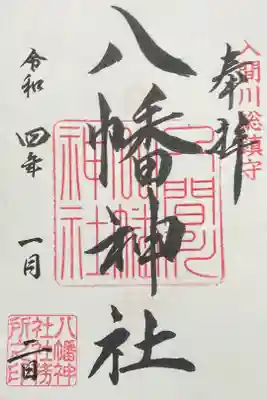 入間川総鎮守
奉拝
八幡神社
入間川
八幡神社
令和四年一月二日
八幡神
社社務
所之印